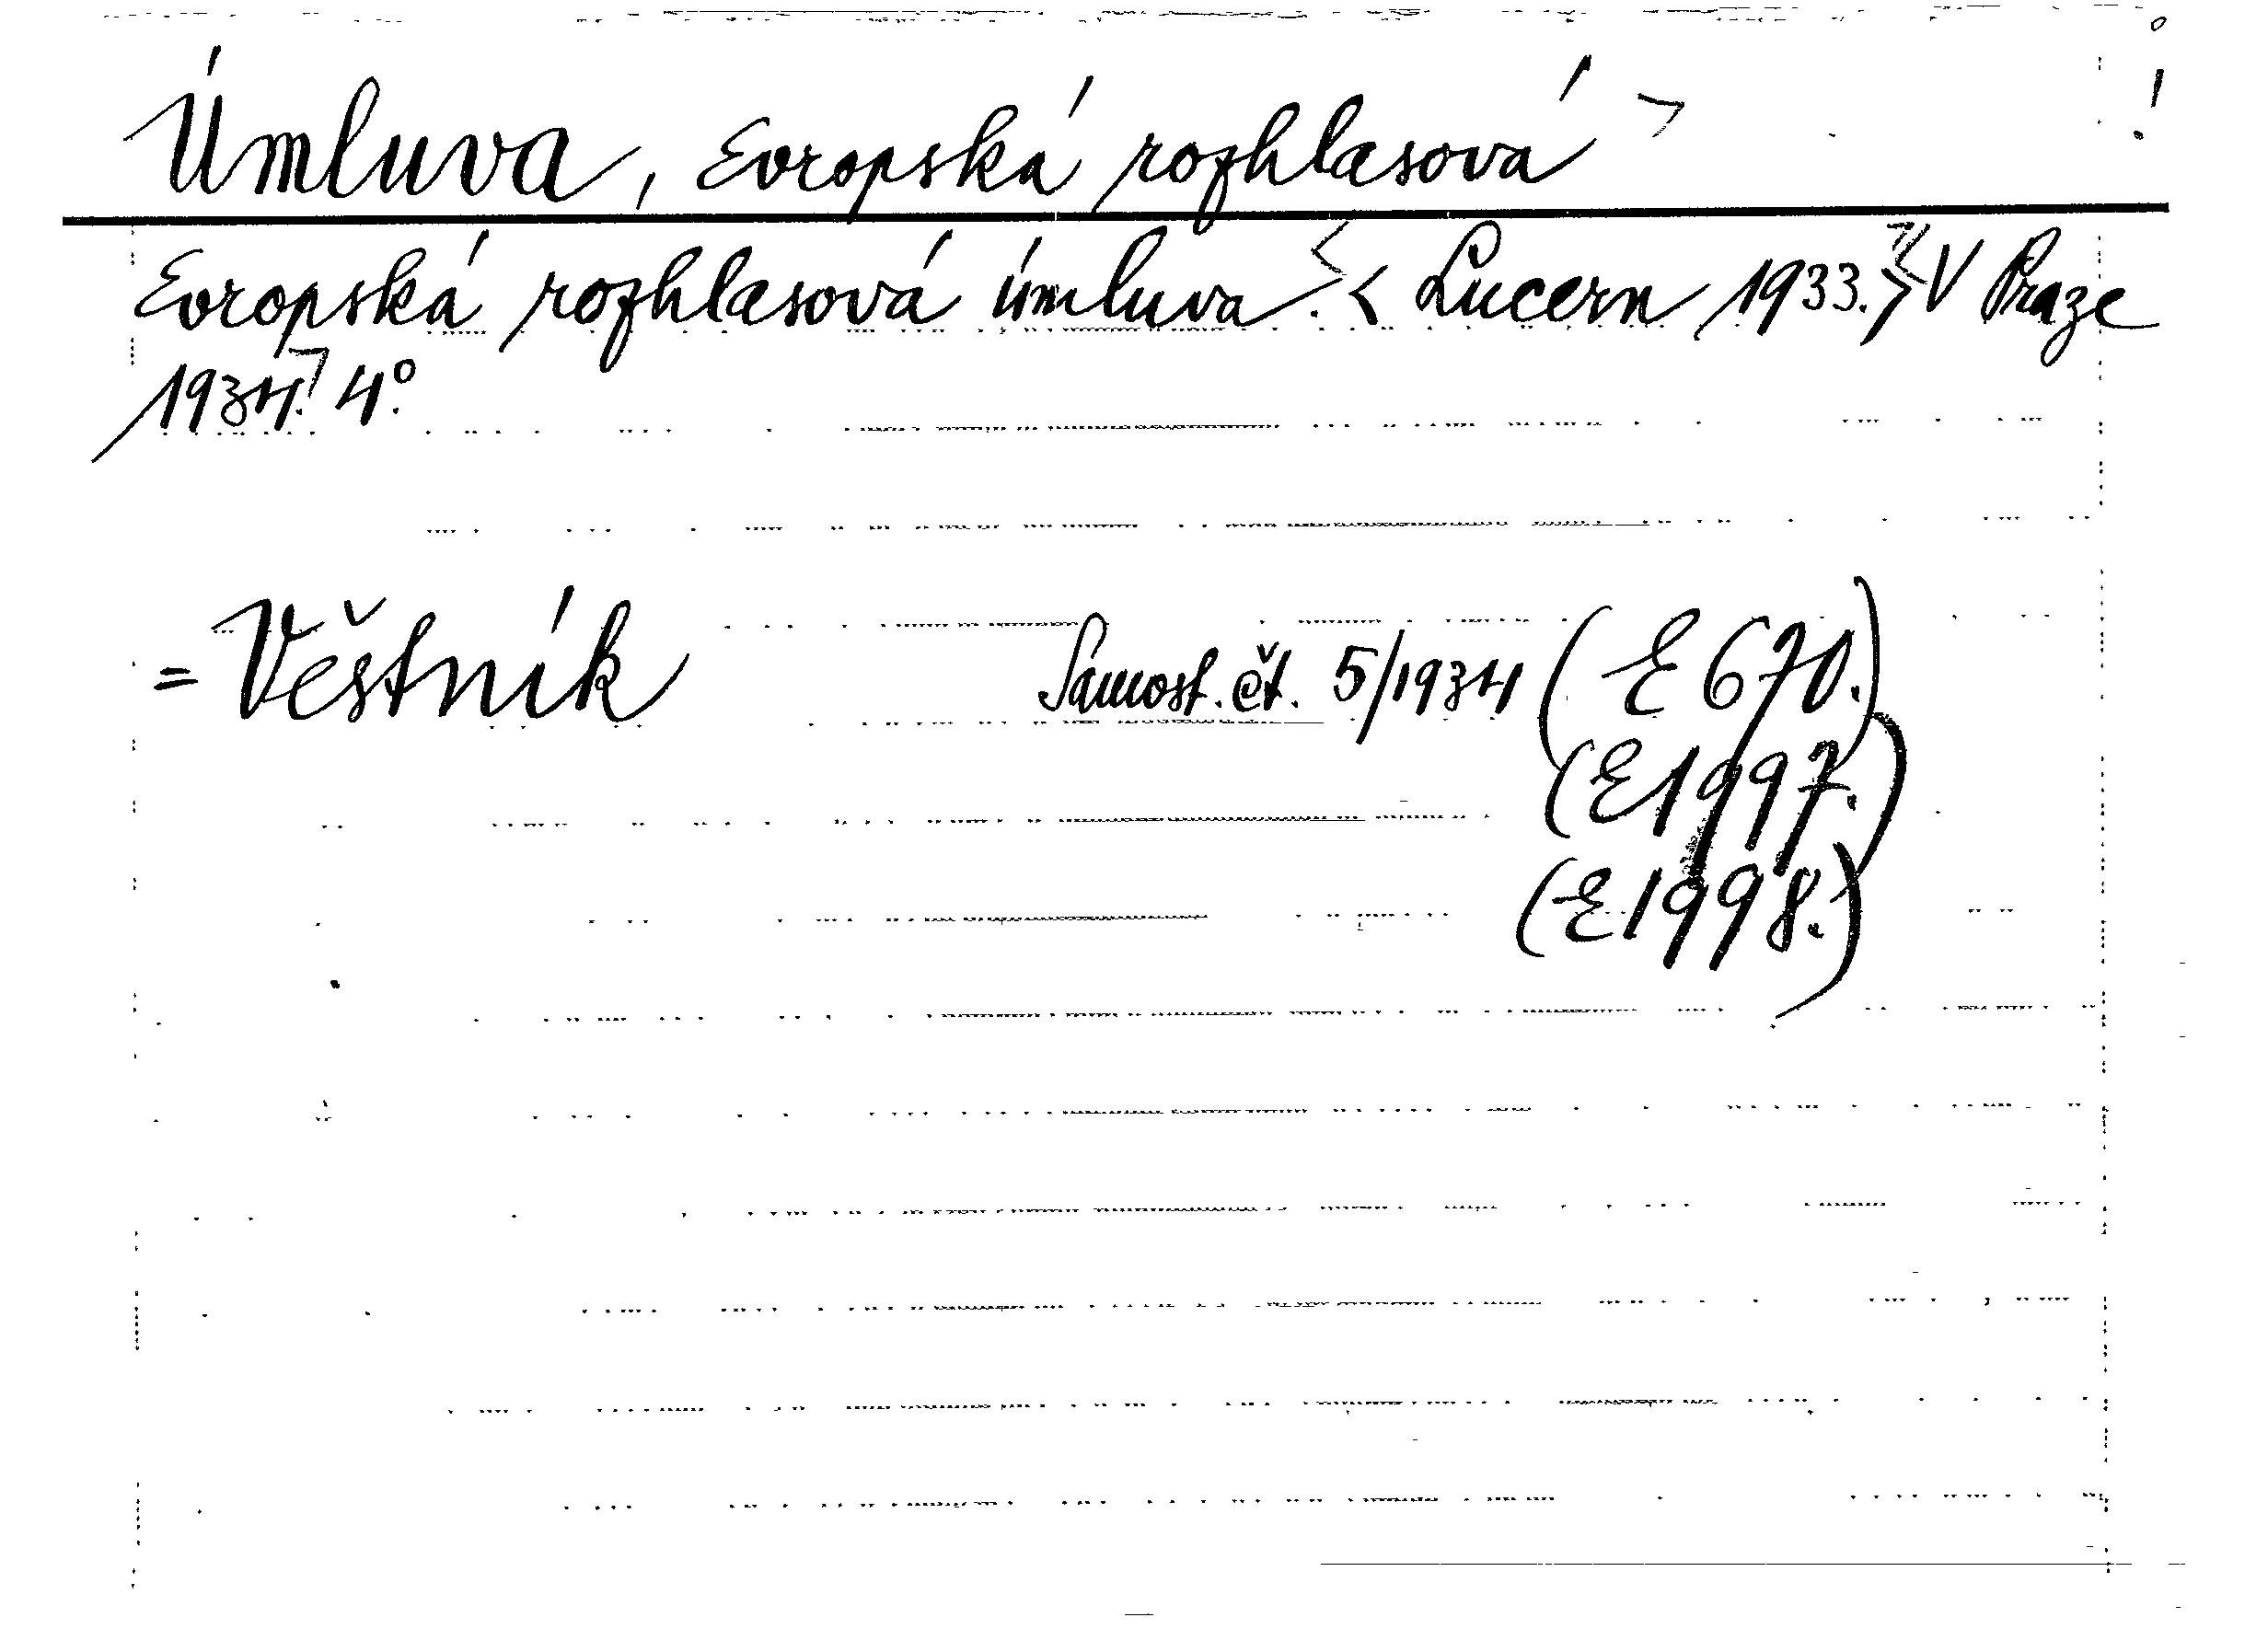 Úmluva, Evropská rozhlasová !
Evropská rozhlasová úmluva. < Lucern 1933.> V Praze
1934. 4°.
= Věstník Samost. čt. 5/1934 (E 670.)
(E 1997.)
(E 1998.)